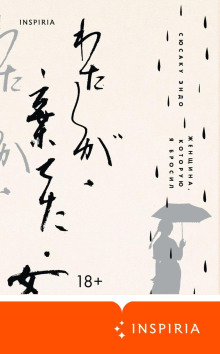 INSPIRIA
わたしが・
棄てた・女
СЮСАКУ ЭНДО
ЖЕНЩИНА,
КОТОРУЮ
Я БРОСИЛ
18+
INSPIRIA